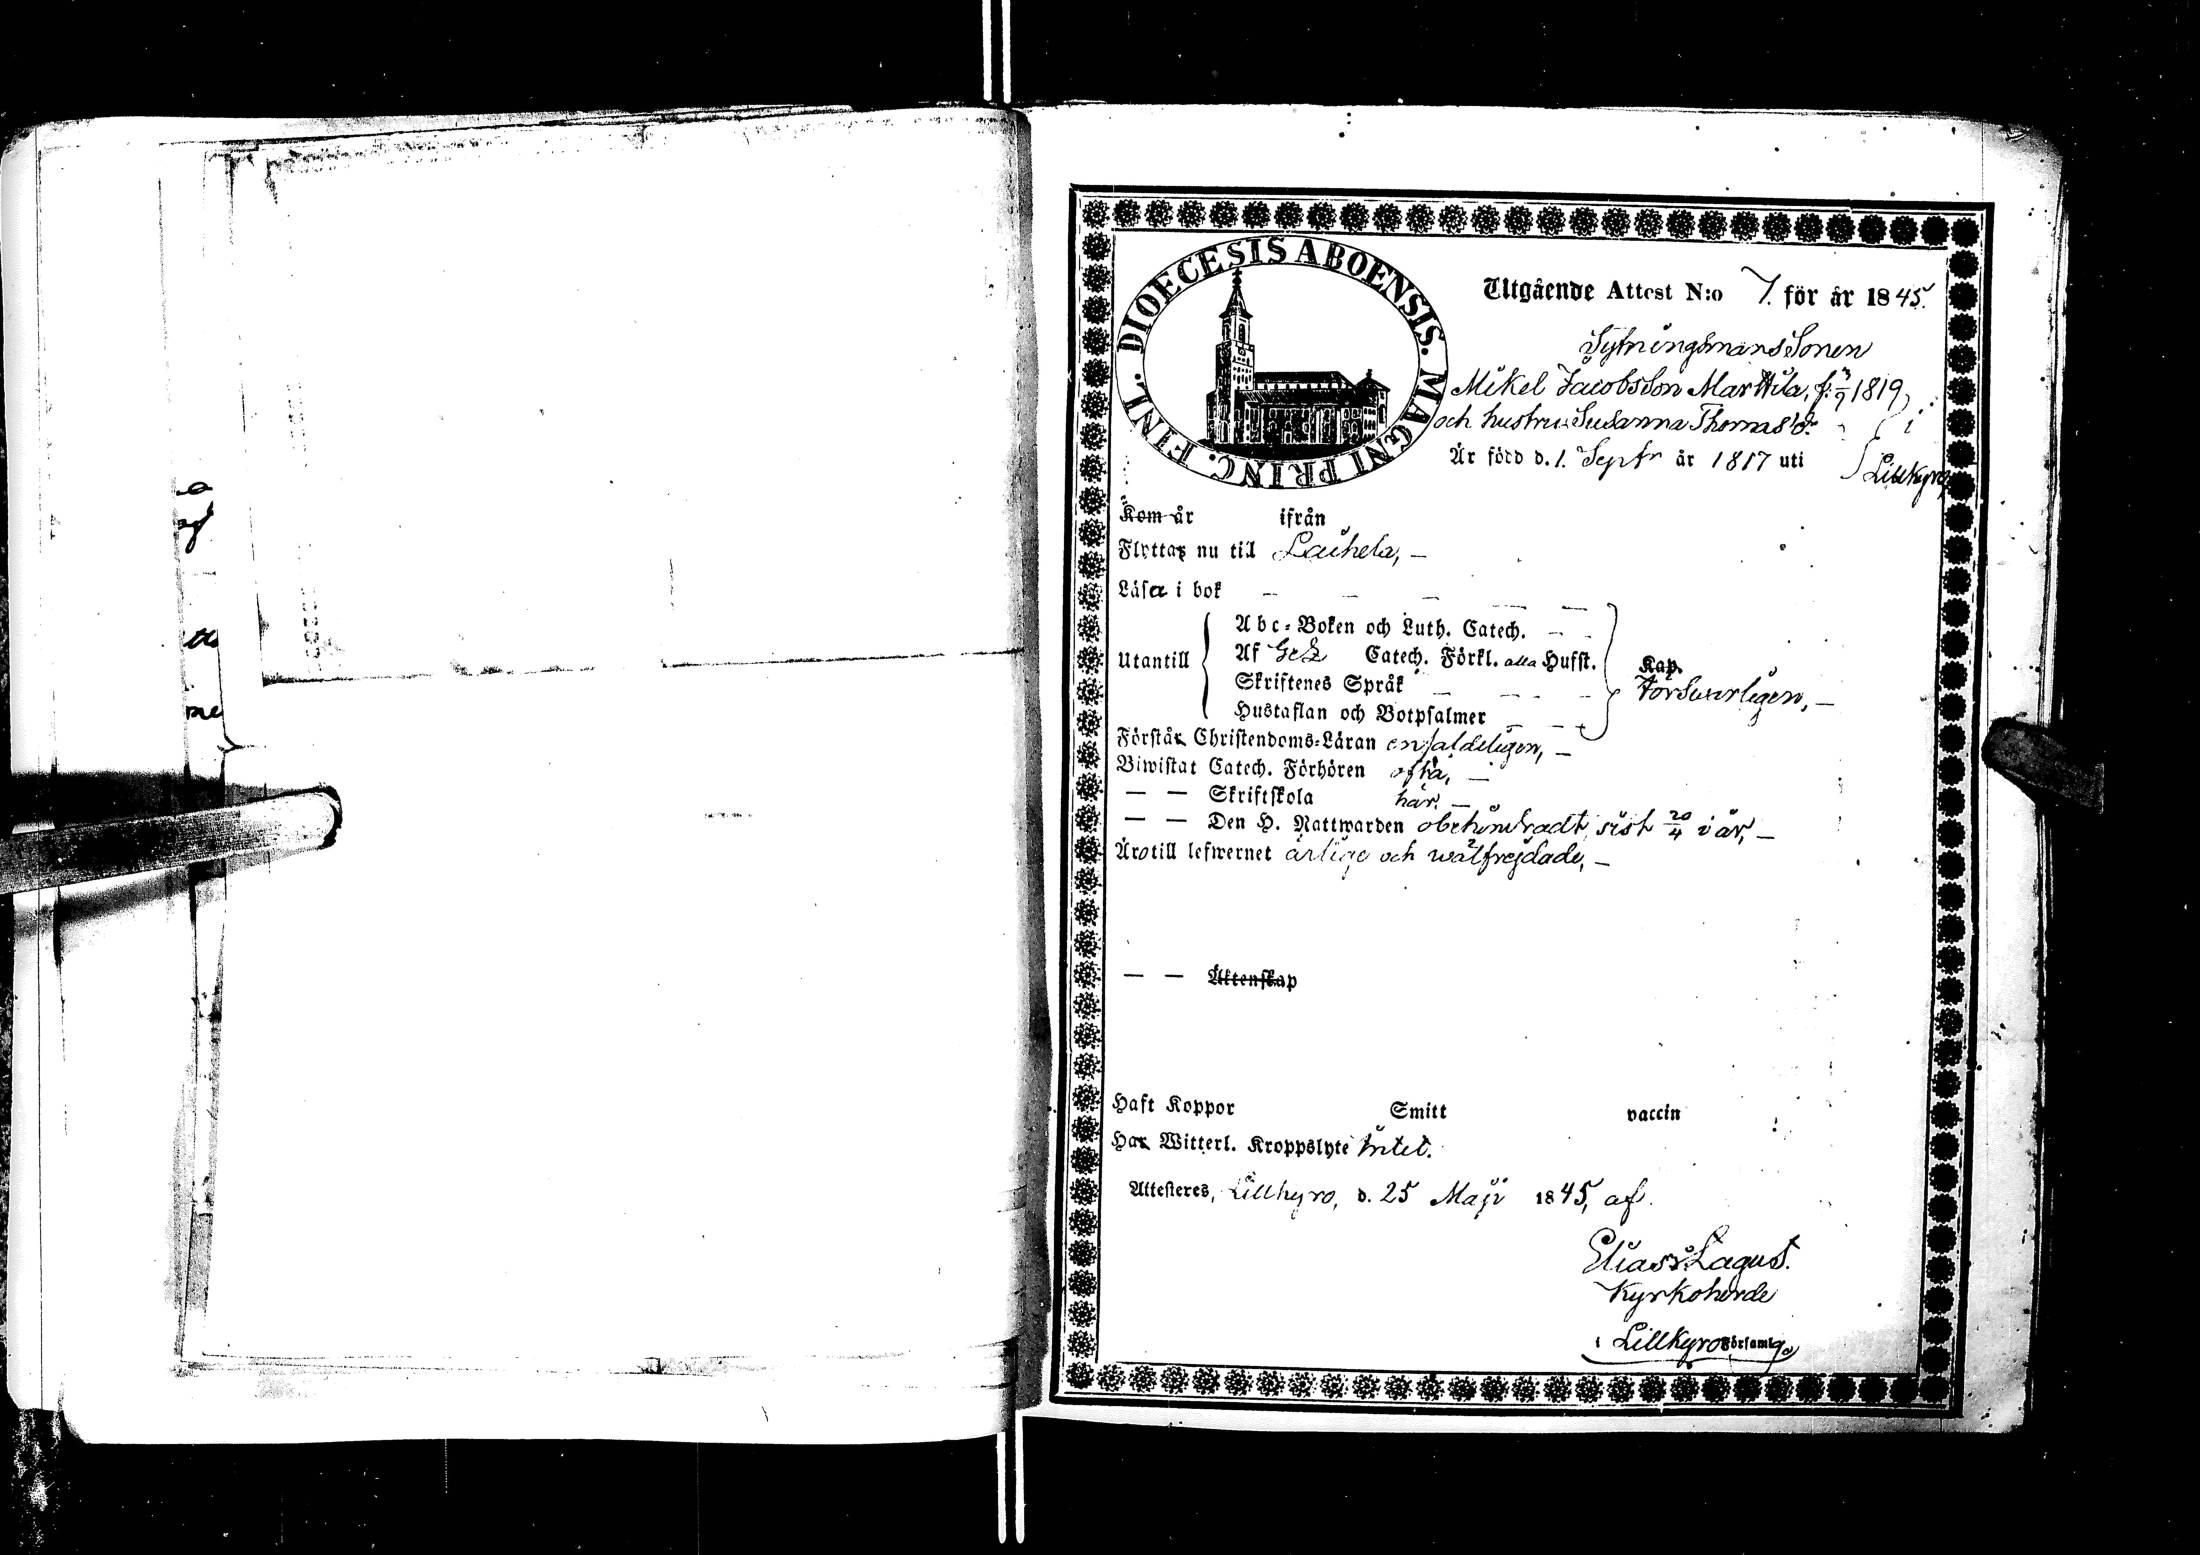 DIOECESIS ABOENSIS. MAGNI PRINC. FINL.
Utgående Attest N:o 7. för år 1845.
Sytningsmans Sonen
Mikel Jacobsson Marttila, f. 3/9 1819,
och hustru Susanna Thomasd:r
Är född d. 1. Septr år 1817 uti i Lillkyro
Kom år ifrån
Flyttar nu till Laihela, —
Läser i bok — — — — —
Utantill
Abc-Boken och Luth. Catech. — —
Af Catech. Förkl. alla Hufst.
Skriftenes Språk — — —
Hustaflan och Botpsalmer — — —
Kap.
försvarligen, —
Förstår Christendoms-Läran enfaldeligen, —
Biwistat Catech. Förhören ofta, —
— — Skriftskola här. —
— — Den H. Nattwarden obehindradt, sist 20/4 i år, —
Äro till lefwernet ärlige och wälfrejdade, —
— — Äktenskap
Haft Koppor Smitt vaccin
Har Witterl. Kroppslyte intet.
Attesteres, Lillkyro, d. 25 Maji 1845, af
Elias Lagus.
Kyrkoherde
i Lillkyro Församlg